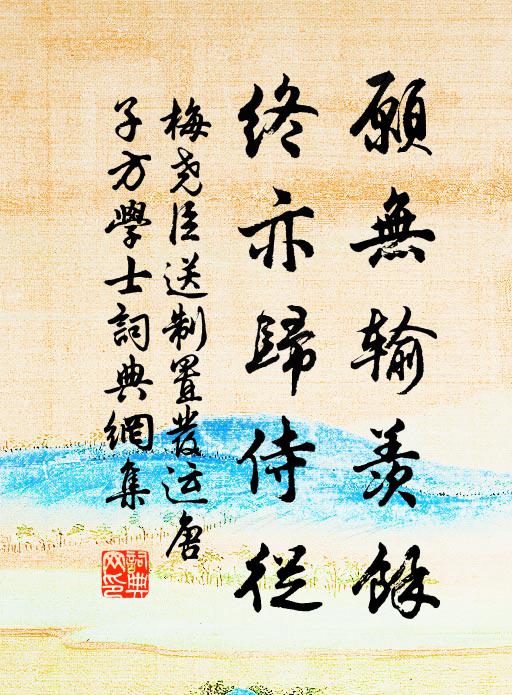 願無輸羨餘
終亦歸侍從
梅尧臣送制置發运唐
子方學士詞典網集
詞典
网印